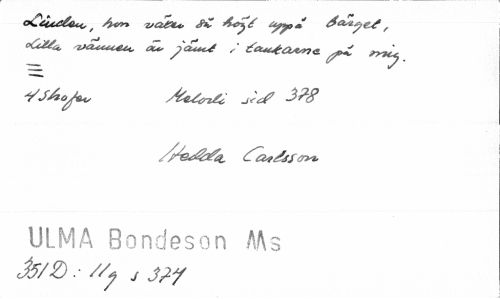 Linden, hon växer så högt uppå bärget,
Lilla vännen är jämt i tankarne på mig.
4 Strofer Melodi sid 378
Hedda Carlsson
ULMA Bondeson Ms
351 D: 11q s 374